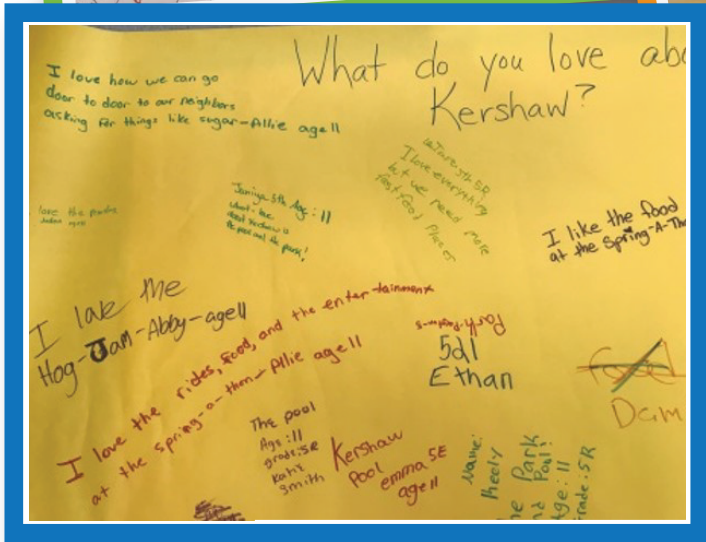 What do you love abo
Kershaw?
I love how we can go
door to door to our neighbors
asking for things like sugar-Allie age11
5th 5R
I love everything
but we need more
fast food places
love the
Janiya 5th Age:11
what I love
about Kershaw is
the pool and the park!
I like the food
at the Spring-A-Th
I love the
Hog-Jam-Abby-age11
I love the rides, food, and the entertainment
at the spring-a-thon-Allie age11
Park
5d1
Ethan
food
Dam
The pool
Age:11
grade:5R
Katie
Smith
Kershaw
Pool
emma 5E
age11
Name:
Keely
he Park
nd Pool!
Age:11
Grade:5R